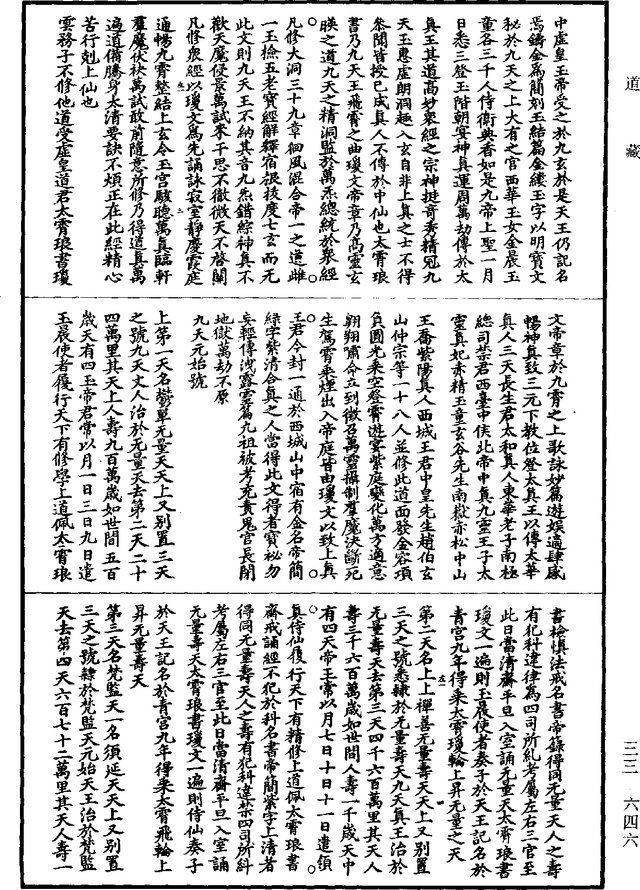 道藏
三三·六四六
中虛皇玉帝受之於九玄於是天王仍記名
焉鑄金為簡刻玉結篇金縷玉字以明寶文
秘於九天之上大有之宮西華玉女金晨玉
童各三千人侍衛典香如是九帝上聖一月
日悉三登玉階朝宴神真運周萬劫傳於太
真王其道高妙衆經之宗神挺奇秀精冠九
天玉惠虛朗洞趣入玄自非上真之士不得
參聞皆授已成真人不傳於中仙也太霄琅
書乃九天王飛霄之曲瓊文帝章乃高靈玄
暎之道九天之精洞監於萬炁總統於衆經
凡修大洞三十九章徊風混合帝一之道雌
一玉檢五老寶經解釋宿根拔度七玄而无
此文則九天王不納其音九炁錯綜神真不
歡天魔侵景萬試來干思不徹微天不啓關
凡修衆經以瓊文爲先誦詠寂室靜慶霞庭
通暢九霄整結上玄令玉宮駭聽萬真臨軒
羣魔伏袂萬試敢前隨意所修乃得道真萬
遍道備騰身太清要訣不煩正在此經精心
苦行剋上仙也
雲務子不修他道受虛皇道君太霄琅書瓊
文帝章於九霄之上歌詠妙篇遊娛適肆感
暢神真致三元下教位登太真王以傳太華
真人三天長生君太和真人東華老子南極
總司禁君西臺中侯北帝中真九靈王子太
靈真妃赤精玉童玄谷先生南嶽赤松中山
王喬紫陽真人西城王君中皇先生趙伯玄
山仲宗等一十八人並修此道面發金容項
負圓光乘空登霄遊宴紫庭變化萬方適意
翱翔嘯命立到徵召萬靈攝制羣魔決斷死
生駕霄乘煙出入帝庭皆由瓊文以致上真
王君今封一通於西城山中宿有金名帝簡
綠字紫清合真之人當得此文得者寶秘勿
妄輕傳洩露雲篇九祖被考充責鬼官長閉
地獄萬劫不原
九天元始號
上第一天名鬱單无量天天上又別置三天
之號九天丈人治於无量天去第二天二十
四萬里其天上人壽九百萬歲如世間五百
歲天有四玉帝君常以月一日三日九日遣
玉晨使者履行天下有修學上道佩太霄琅
書檢慎法戒名書帝籙得同无量天人之壽
有犯科違律為四司所糺考屬左右三官至
此日當清齋平旦入室誦无量天太霄琅書
瓊文一遍則玉晨使者奏子於天王記名於
青宮九年得乘太霄瓊輪上昇无量之天
第二天名上上禪善无量壽天天上又別置
三天之號悉隸於无量壽天九天真王治於
无量壽天去第三天四千六百萬里其天人
壽三千六百萬歲如世間人壽一千歲天中
有四天帝王常以月七日十日十一日遣領
真侍仙履行天下有精修上道佩太霄琅書
齋戒誦經不犯於科名書帝簡紫字上清者
得同无量壽天人之壽有犯科違禁四司所糾
考屬左右三官至此日當清齋平旦入室誦
无量壽天太霄琅書瓊文一遍則侍仙奏子
於天王記名於青宮九年得乘太霄飛輪上
昇无量壽天
第三天名梵監天一名須延天天上又別置
三天之號隸於梵監天元始天王治於梵監
天去第四天六百七十二萬里其天人壽一